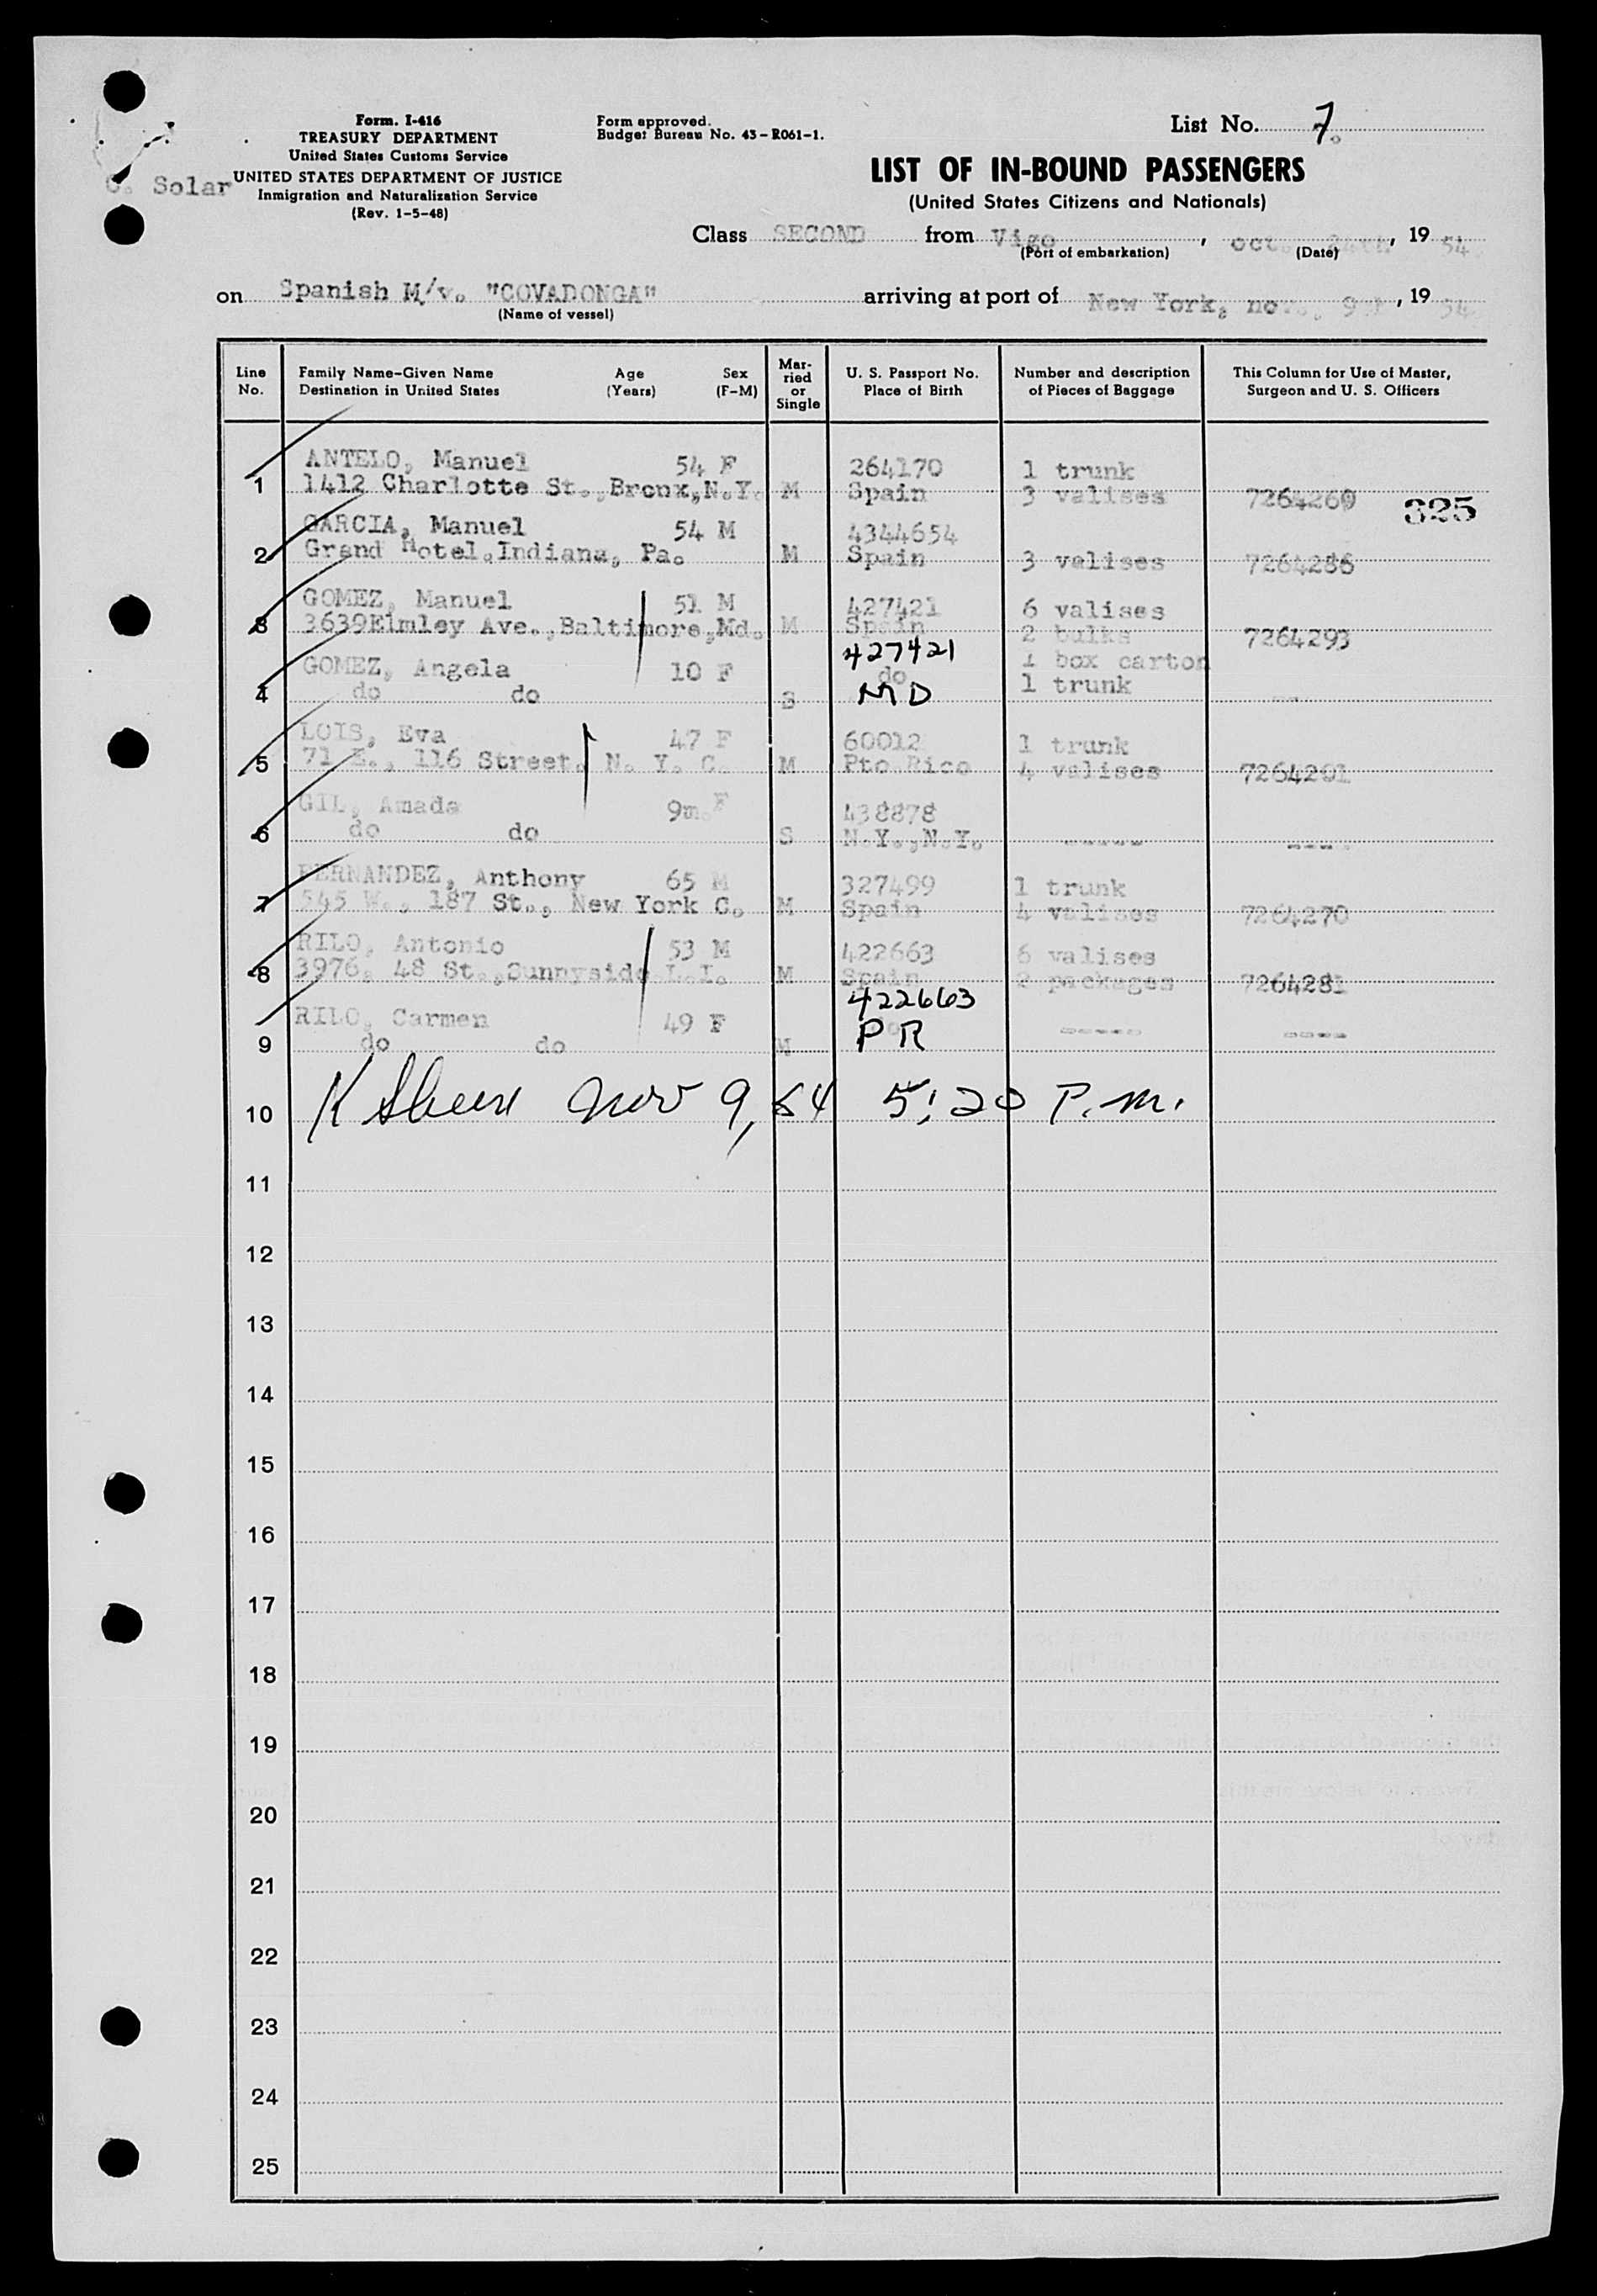 Form. I-416
TREASURY DEPARTMENT
United States Customs Service
UNITED STATES DEPARTMENT OF JUSTICE
Inmigration and Naturalization Service
(Rev. 1-5-48)
Solar
Form approved.
Budget Bureau No. 43-R061-1.
List No. 7.
LIST OF IN-BOUND PASSENGERS
(United States Citizens and Nationals)
Class SECOND from Vigo, oct. , 19 54
(Port of embarkation) (Date)
on Spanish M/v. "COVADONGA" arriving at port of New York, , 19 54
(Name of vessel)
Line No. Family Name-Given Name Destination in United States Age (Years) Sex (F-M) Mar-ried or Single U. S. Passport No. Place of Birth Number and description of Pieces of Baggage This Column for Use of Master, Surgeon and U. S. Officers
ANTELO, Manuel 54 F 264170 1 trunk
1 1412 Charlotte St., Bronx, N.Y. M Spain 3 valises 7264260 325
GARCIA, Manuel 54 M 4344654
2 Grand Hotel, Indiana, Pa. M Spain 3 valises 7264286
GOMEZ, Manuel 51 M 427421 6 valises
3 3639Elmley Ave.,Baltimore,Md. M Spain 2 bulks 7264293
427421 1 box carton
GOMEZ, Angela 10 F do 1 trunk
4 do do S MD --
LOIS, Eva 47 F 60012 1 trunk
5 71 E., 116 Street. N. Y. C. M Pto.Rico 4 valises 7264201
GIL, Amada 9m. F 438878
6 do do S N.Y.,N.Y. ----- ----
FERNANDEZ, Anthony 65 M 327499 1 trunk
7 545 W., 187 St., New York C. M Spain 4 valises 7264270
RILO, Antonio 53 M 422663 6 valises
8 3976, 48 St.,Sunnyside L.I. M Spain 2 packages 7264281
422663
RILO, Carmen 49 F PR ----- ----
9 do do M
10 Nov 9, 54 5:20 P.m.
11
12
13
14
15
16
17
18
19
20
21
22
23
24
25